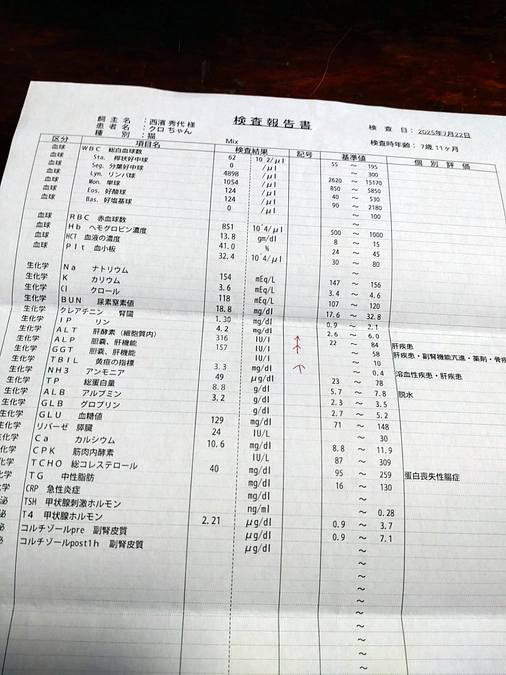 飼主名 : 西濱 秀代 様
患者名 : クロ ちゃん
種別 : 猫
Mix
検査報告書
検査日: 2025年7月22日
検査時年齢: 7歳 11ヶ月
区分 項目名 検査結果 記号 基準値 個別評価
血球 WBC 総白血球数 62 10^2/μl 55 ～ 195
血球 Sta. 桿状好中球 0 /μl ～ 300
血球 Seg. 分葉好中球 4898 /μl 2620 ～ 15170
血球 Lym. リンパ球 1054 /μl 850 ～ 5850
血球 Mon. 単球 124 /μl 40 ～ 530
血球 Eos. 好酸球 /μl 90 ～ 2180
血球 Bas. 好塩基球 0 /μl ～ 100
血球 RBC 赤血球数 851 10^4/μl 500 ～ 1000
血球 Hb ヘモグロビン濃度 13.8 gm/dl 8 ～ 15
血球 HCT 血液の濃度 41.0 % 24 ～ 45
血球 Plt 血小板 32.4 10^4/μl 30 ～ 80
生化学 Na ナトリウム 154 mEq/L 147 ～ 156
生化学 K カリウム 3.6 mEq/L 3.4 ～ 4.6
生化学 Cl クロール 118 mEq/L 107 ～ 120
生化学 BUN 尿素窒素値 18.8 mg/dl 17.6 ～ 32.8
生化学 クレアチニン 腎臓 1.30 mg/dl 0.9 ～ 2.1
生化学 IP リン 4.2 mg/dl 2.6 ～ 6.0
生化学 ALT 肝酵素(細胞質内) 316 IU/l ↑ 22 ～ 84 肝疾患
生化学 ALP 胆嚢、肝機能 157 IU/l ↑ ～ 58 肝疾患・副腎機能亢進・薬剤・骨疾
生化学 GGT 胆嚢、肝機能 IU/l ～ 10
生化学 TBIL 黄疸の指標 3.3 mg/dl ↑ ～ 0.4 溶血性疾患・肝疾患
生化学 NH3 アンモニア 49 μg/dl 23 ～ 78
生化学 TP 総蛋白量 8.8 g/dl 5.7 ～ 7.8 脱水
生化学 ALB アルブミン 3.2 g/dl 2.3 ～ 3.5
生化学 GLB グロブリン g/dl 2.7 ～ 5.2
生化学 GLU 血糖値 129 mg/dl 71 ～ 148
生化学 リパーゼ 膵臓 24 IU/L ～ 30
生化学 Ca カルシウム 10.6 mg/dl 8.8 ～ 11.9
生化学 CPK 筋肉内酵素 IU/L 87 ～ 309
生化学 TCHO 総コレステロール mg/dl 95 ～ 259 蛋白喪失性腸症
化学 TG 中性脂肪 40 mg/dl 16 ～ 130
化学 CRP 急性炎症 mg/dl ～
泌 TSH 甲状腺刺激ホルモン ng/ml ～ 0.28
泌 T4 甲状腺ホルモン 2.21 μg/dl 0.9 ～ 3.7
泌 コルチゾールpre 副腎皮質 μg/dl 0.9 ～ 7.1
泌 コルチゾールpost1h 副腎皮質 μg/dl ～